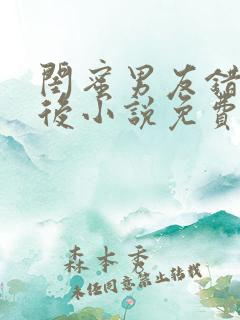 閨蜜男友錯
後小說免費
森本秀
未经同意禁止转载